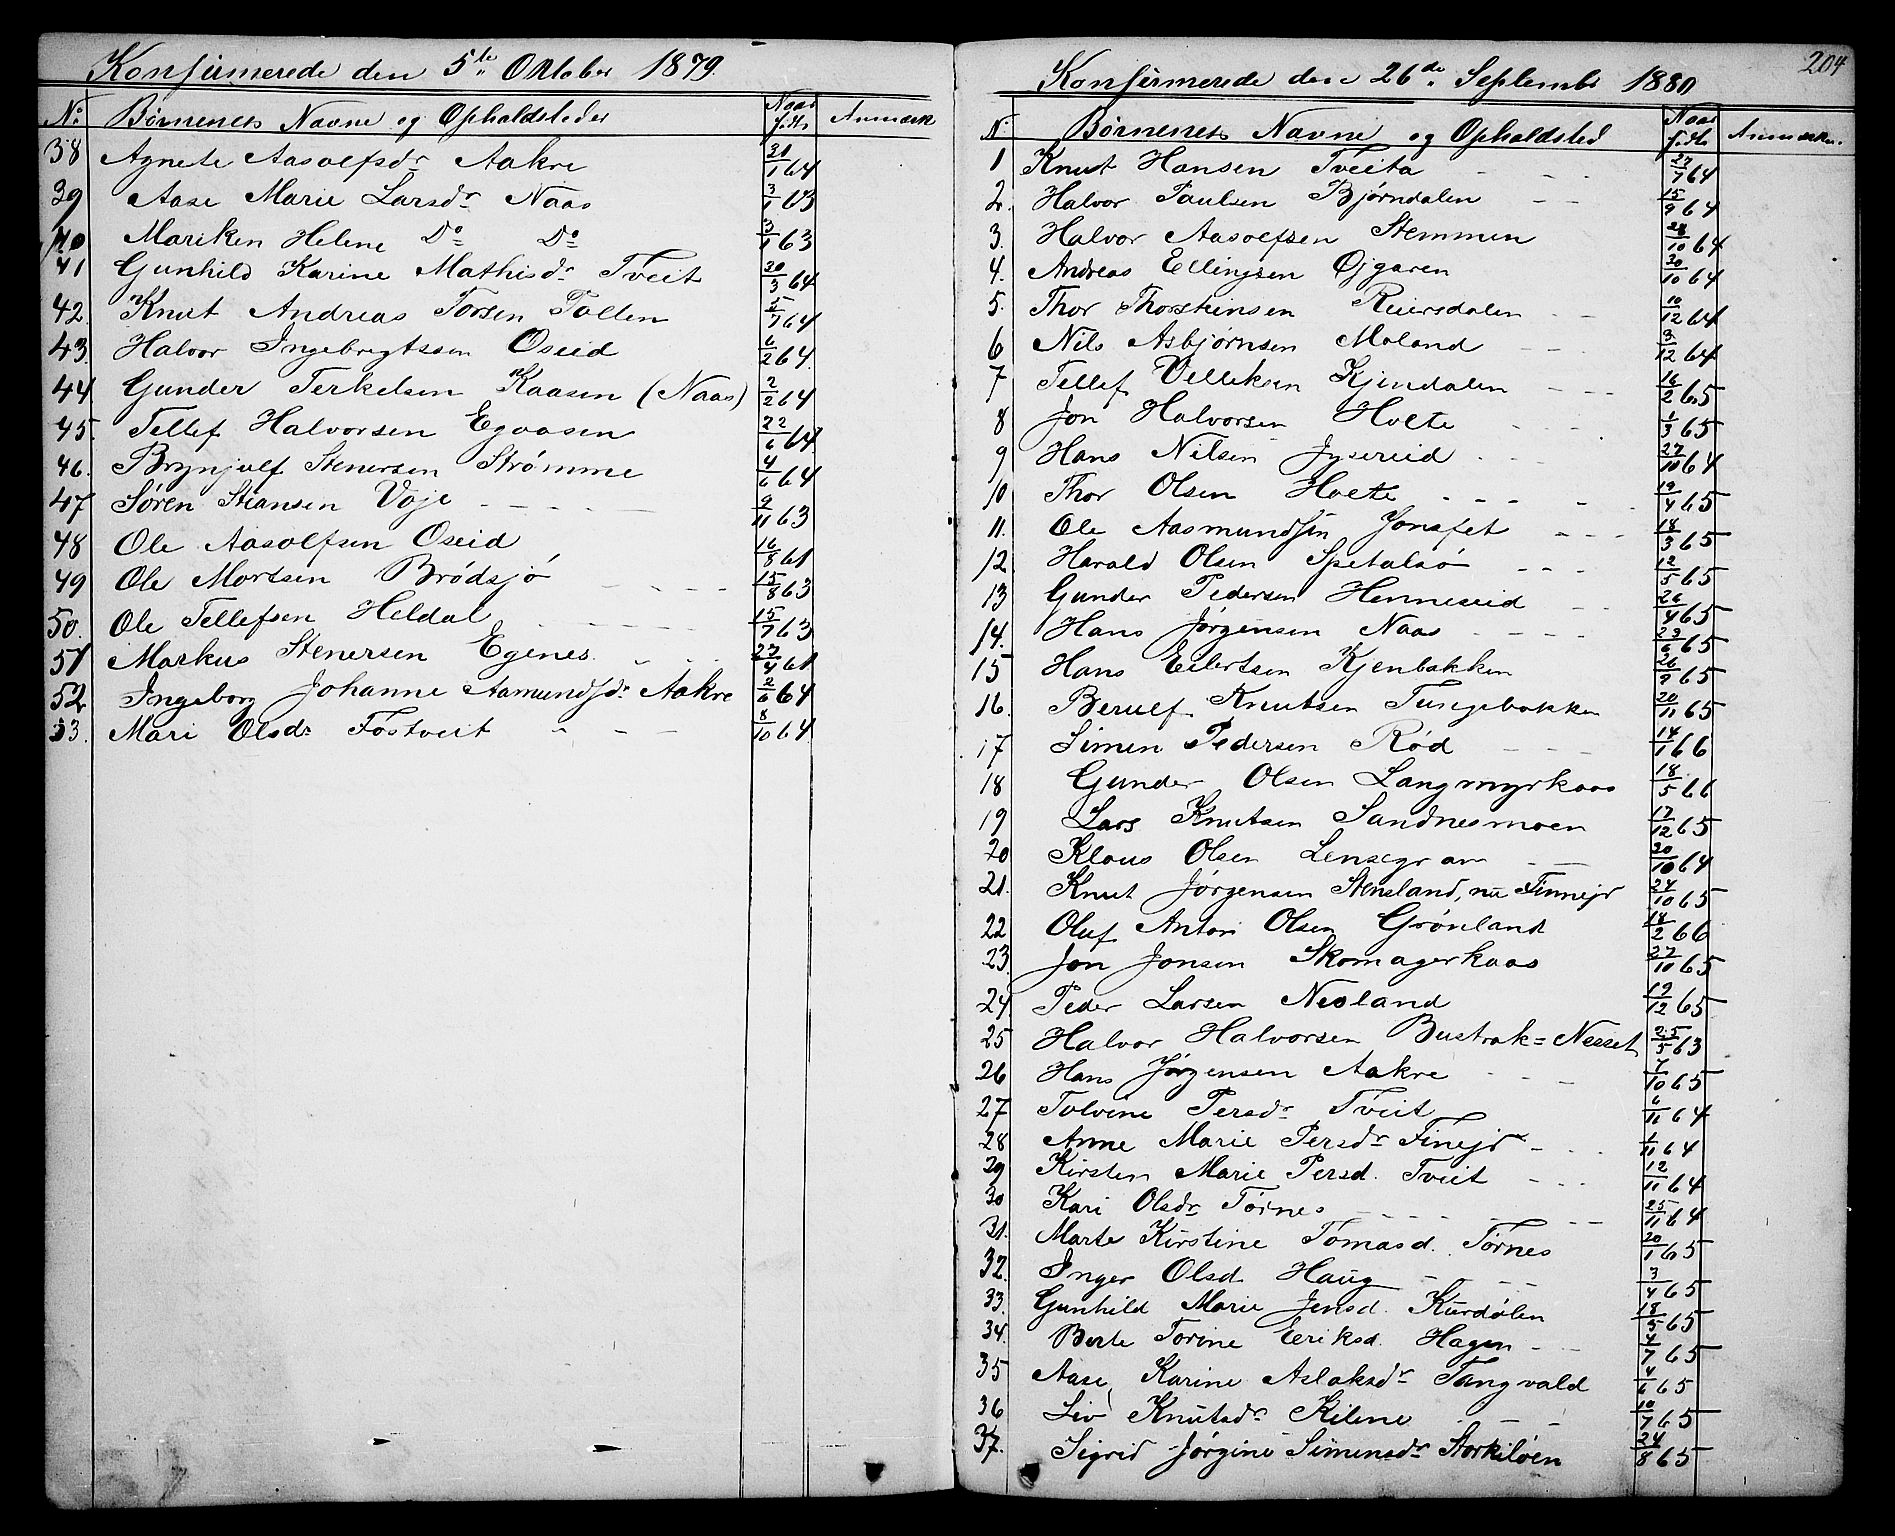 Konfirmerede den 5te Oktober 1879.
No Børnenes Navne og Opholdsteder Naar fødte Anmærk
38 Agnete Aasolfsdr Aakre 21/1 64
39 Aase Marie Larsdr Naas 3/1 63
40 Mariken Helene Do Do 3/1 63
41 Gunhild Karine Mathisdr Tveit 30/3 64
42. Knut Andreas Torsen Tollen 5/7 64
43. Halvor Ingebregtssen Oseid 6/2 64
44 Gunder Terkelsen Kaasen (Naas) 2/2 64
45. Tellef Halvorsen Egaasen 22/6 64
46. Brynjulf Stenersen Strømme 4/6 64
47 Søren Stiansen Voje 9/11 63
48 Ole Aasolfsen Oseid 16/8 61
49 Ole Mortsen Brødsjø 15/8 63
50. Ole Tellefsen Heldal 15/7 63
51 Markus Stenersen Egenes 27/4 61
52 Ingeborg Johanne Aamundsdr Aakre 2/6 64
53. Mari Olsdr Føstveit 8/10 64
204
Konfirmerede den 26de Septembr 1880
N. Børnenes Navne og Opholdsted Naar fødte Anmærkn.
1 Knut Hansen Tveita 27/7 64
2. Halvor Paulsen Bjørndalen 15/9 64
3. Halvor Aasolfsen Stemmen 28/10 64
4. Andreas Ellingsen Øjgaren 30/10 64
5. Thor Thorsteinsen Reiersdalen 10/12 64
6 Nils Asbjørnsen Moland 3/12 64
7 Tellef Velleksen Kjendalen 16/2 65
8 Jon Halvorsen Holte 1/3 65
9 Hans Nilsen Jysereid 27/10 64
10 Thor Olsen Holte 19/4 65
11. Ole Aasmundsen Jonsfet 18/3 65
12 Harald Olsen Spetalsø 12/5 65
13 Gunder Pedersen Henneseid 26/4 65
14. Hans Jørgensen Naas 23/6 65
15 Hans Eilertsen Kjenbakken 26/9 65
16. Berulf Knutsen Tungebakken 20/11 65
17 Simen Pedersen Rød 14/1 66
18 Gunder Olsen Langmyrkaas 18/5 66
19 Lars Knutsen Sandnesmoen 17/12 65
20 Klaus Olsen Lensegrav 30/10 64
21. Knut Jørgensen Stensland, nu Finnejr 24/10 65
22 Oluf Anton Olsen Grønland 18/2 66
23 Jon Jonsen Skomagerkaas 27/10 65
24 Peder Larsen Nesland 19/12 65
25 Halvor Halvorsen Bustrak=Nesset 25/5 63
26 Hans Jørgensen Aakre 7/10 65
27 Tolvine Persdr Tveit 6/11 64
28 Anne Marie Persdr Finejr 1/11 64
29 Kirsten Marie Persd. Tveit 12/11 64
30 Kari Olsdr Tørnes 25/11 64
31. Marte Kirstine Tomasd. Tørnes 20/1 65
32. Inger Olsd Haug 3/4 65
33. Gunhild Marie Jensd. Kurdølen 18/5 65
34. Berte Torine Eeriksd. Hagen 4/7 65
35 Aase Karine Aslaksdr Tangvald 4/6 65
36 Liv Knutsdr Kilene 10/7 65
37. Sigrid Jørgine Simensdr Storkiløen 24/8 65